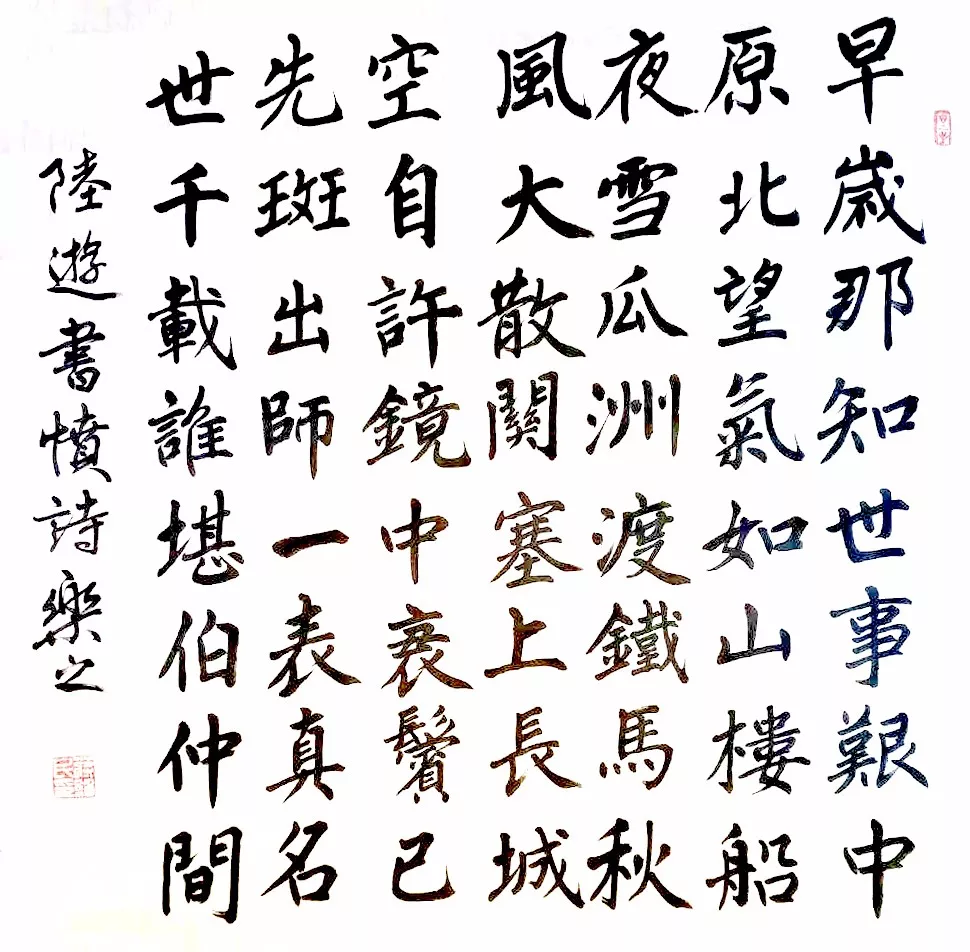 早歲那知世事艱中
原北望氣如山樓船
夜雪瓜洲渡鐵馬秋
風大散關塞上長城
空自許鏡中衰鬢已
先斑出師一表真名
世千載誰堪伯仲間
陸遊書憤詩樂之